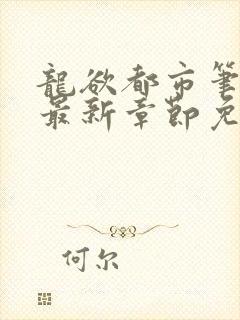 龍欲都市筆
最新章節免
何尔